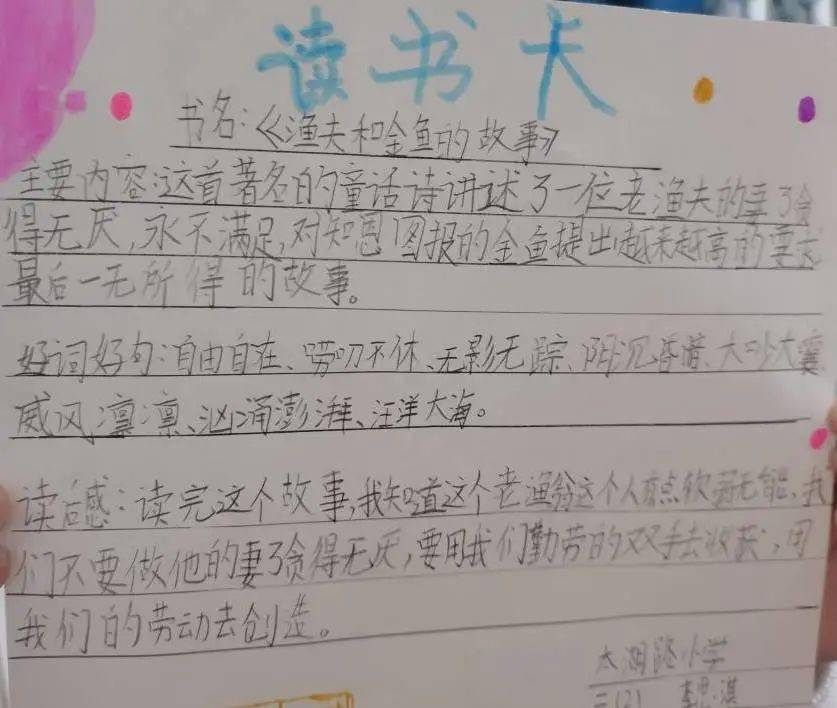 读书卡
书名:《渔夫和金鱼的故事》
主要内容:这首著名的童话诗讲述了一位老渔夫的妻了贪
得无厌,永不满足,对知恩图报的金鱼提出越来越高的要求
最后一无所得的故事。
好词好句:自由自在、唠叨不休、无影无踪、阴沉昏暗、大吵大嚷
威风凛凛、汹涌澎湃、汪洋大海。
读后感:读完这个故事,我知道这个老渔翁这个人有点软弱无能,我
们不要做他的妻了贪得无厌,要用我们勤劳的双手去收获,用
我们的劳动去创造。
太湖路小学
三(2) 李 淇